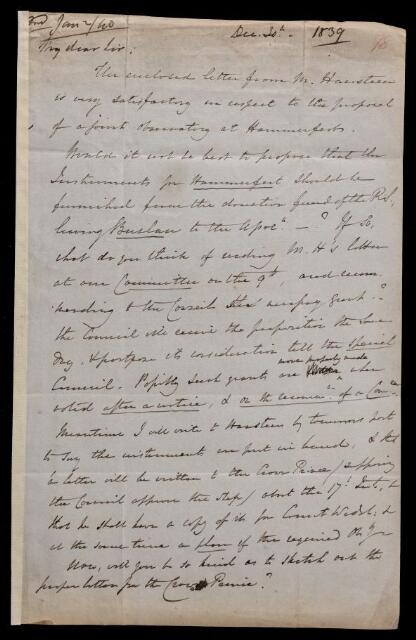 Jan 2/40
Dec. 30th. 1839
My dear Sir,
The enclosed letter from M. Hansteen
is very satisfactory in respect to the proposal
of a joint observatory at Hammerfest.
Would it not be best to propose that the
Instruments for Hammerfest should be
furnished from the donation fund of the R.S.,
leaving Breslau to the Assocn — ? If so,
what do you think of reading M. H's letter
at our Committee on the 9th, and recom
mending to the Council the necessary grant?
the Council receive the proposition the same
day, & postpone its consideration till the special
Council. Possibly such grants are more properly made when
voted after a notice, & on the recomn. of a Comee.
Meantime I will write to Hansteen by tomorrows post
to say the instruments are put in hand, & that
a letter will be written to the Crown Prince / supposing
the Council approve the step / about the 17th Inst, &
that he shall have a copy of it for Count Wedel; &
at the same time a plan of the required Obsy.
Now, will you be so kind as to sketch out the
proper letter for the Crown Prince?